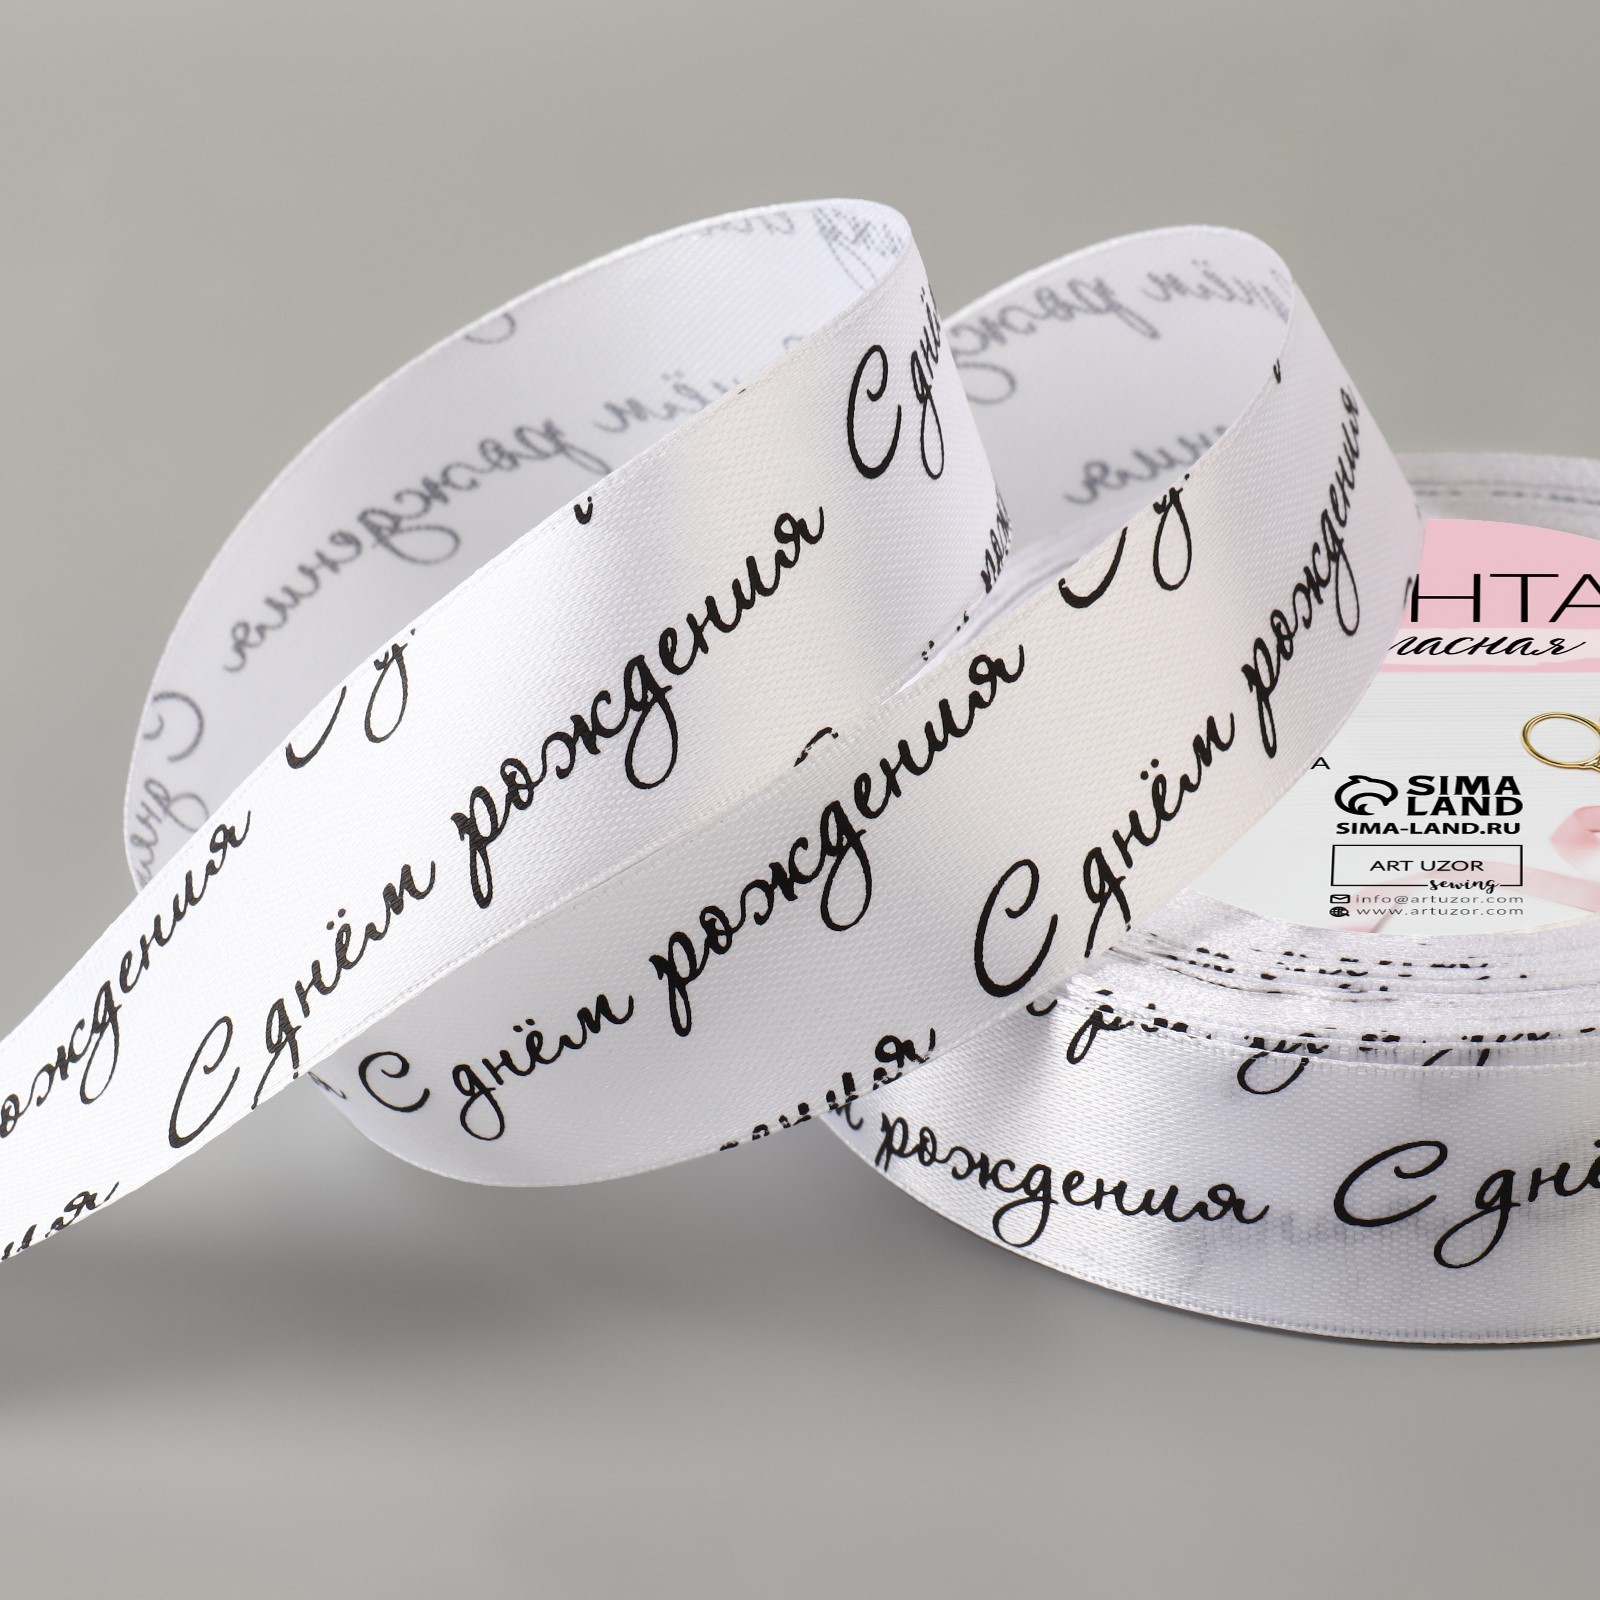 С днём рождения
С днё
рождения
С днём рождения
С днём рождения
рождения
С днё
НТА
ласная
SIMA
LAND
SIMA-LAND.RU
ART UZOR
sewing
info@artuzor.com
www.artuzor.com